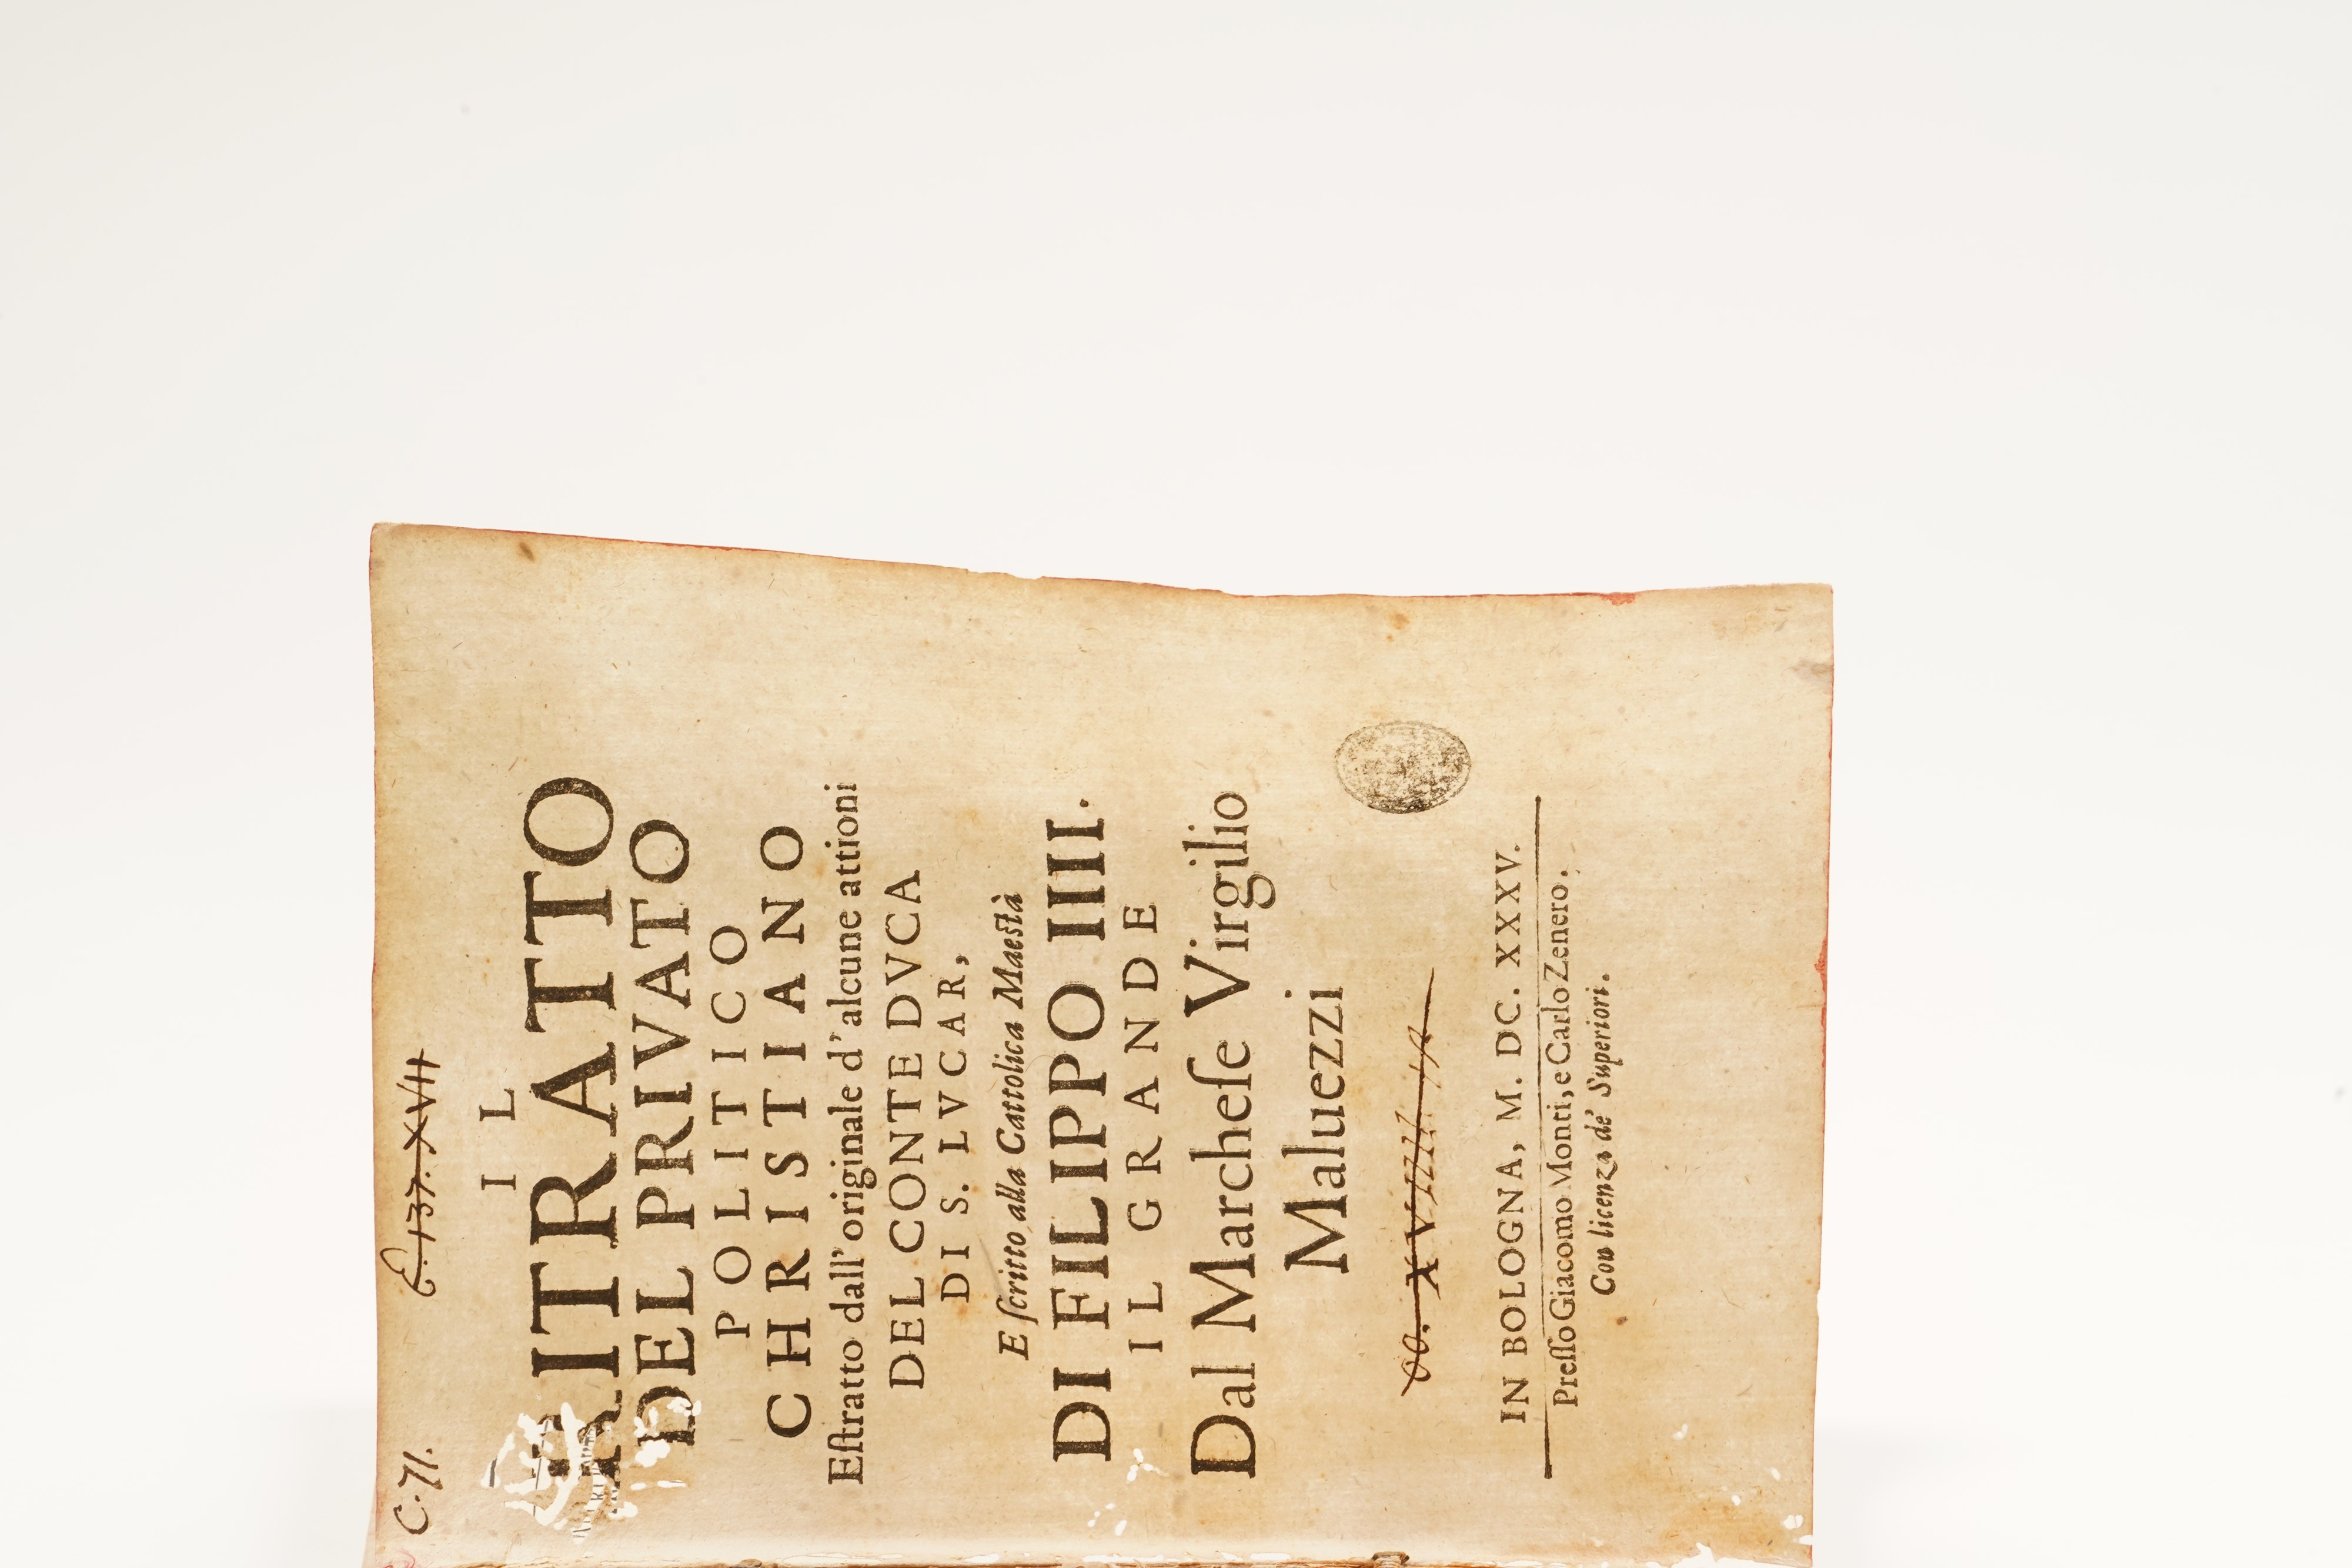 C. 71.
E. 137. XVII
IL
RITRATTO
DEL PRIVATO
POLITICO
CHRISTIANO
Eſtratto dall'originale d'alcune attioni
DEL CONTE DVCA
DI S. LVCAR,
E ſcritto alla Cattolica Maestà
DI FILIPPO IIII.
IL GRANDE
Dal Marcheſe Virgilio
Maluezzi
oo. XVIIII.
IN BOLOGNA, M. DC. XXXV.
Preſſo Giacomo Monti, e Carlo Zenero.
Con licenza de' Superiori.